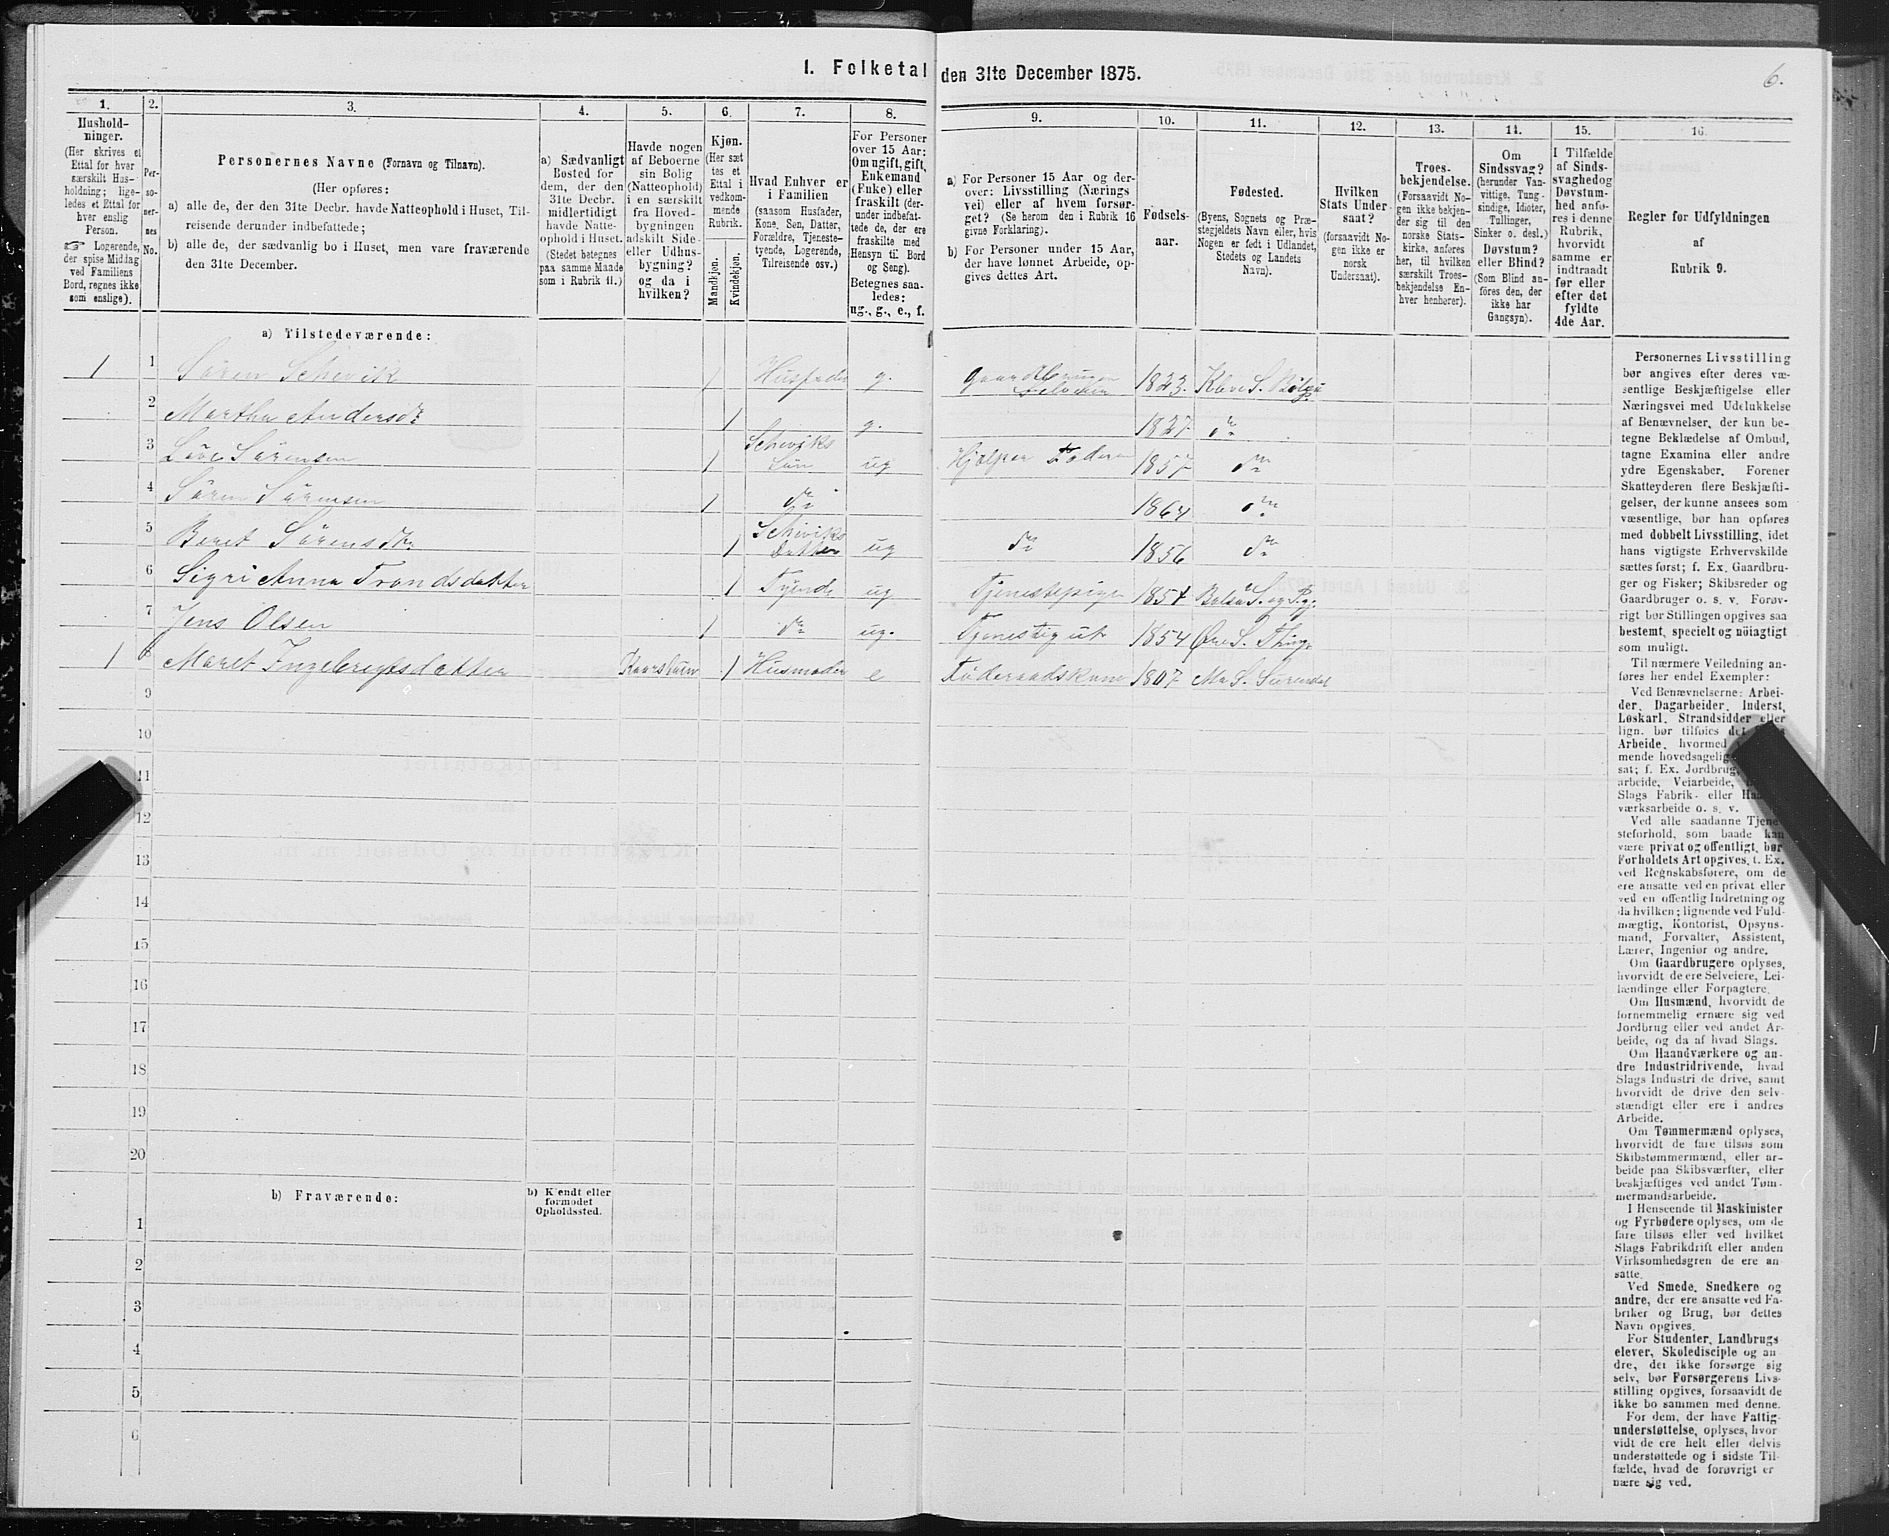 I. Folketal den 31te December 1875.
6.
1.
Hushold-
ninger.
(Her skrives et
Ettal for hver
særskilt Hus-
holdning; lige-
ledes et Ettal for
hver enslig
Person.
☞ Logerende,
der spise Middag
ved Familiens
Bord, regnes ikke
som enslige).
2.
Per-
so-
ner-
nes
No.
3.
Personernes Navne (Fornavn og Tilnavn).
(Her opføres:
a) alle de, der den 31te Decbr. havde Natteophold i Huset, Til-
reisende derunder indbefattede;
b) alle de, der sædvanlig bo i Huset, men vare fraværende
den 31te December.
4.
a) Sædvanligt
Bosted for
dem, der den
31te Decbr.
midlertidigt
havde Natte-
ophold i Huset.
(Stedet betegnes
paa samme Maade
som i Rubrik 11.)
5.
Havde nogen
af Beboerne
sin Bolig
(Natteophold)
i en særskilt
fra Hoved-
bygningen
adskilt Side-
eller Udhus-
bygning?
og da i
hvilken?
6.
Kjøn.
(Her sæt-
tes et
Ettal i
vedkom-
mende
Rubrik.
Mandkjøn.
Kvindekjøn.
7.
Hvad Enhver er
i Familien
(saasom Husfader,
Kone, Søn, Datter,
Forældre, Tjeneste-
tyende, Logerende,
Tilreisende osv.)
8.
For Personer
over 15 Aar:
Om ugift, gift,
Enkemand
(Enke) eller
fraskilt (der-
under indbefat-
tede de, der ere
fraskilte med
Hensyn til Bord
og Seng).
Betegnes saa-
ledes:
ug., g., e., f.
9.
a) For Personer 15 Aar og der-
over: Livsstilling (Nærings
vei) eller af hvem forsør-
get? (Se herom den i Rubrik 16
givne Forklaring).
b) For Personer under 15 Aar,
der have lønnet Arbeide, op-
gives dettes Art.
10.
Fødsels-
aar.
11.
Fødested.
(Byens, Sognets og Præ-
stegjeldets Navn eller, hvis
Nogen er født i Udlandet,
Stedets og Landets
Navn).
12.
Hvilken
Stats Under-
saat?
(forsaavidt No-
gen ikke er
norsk
Undersaat).
13.
Troes-
bekjendelse.
(Forsaavidt No-
gen ikke bekjen-
der sig til den
norske Stats-
kirke, anføres
her, til hvilken
særskilt Troes-
bekjendelse En-
hver henhører).
14.
Om
Sindssvag?
(herunder Van-
vittige, Tung-
sindige, Idioter,
Tullinger,
Sinker o. desl.)
Døvstum?
eller Blind?
(Som Blind an-
føres den, der
ikke har
Gangsyn).
15.
I Tilfælde
af Sinds-
svaghed og
Døvstum-
hed anfø-
res i denne
Rubrik,
hvorvidt
samme er
indtraadt
før eller
efter det
fyldte
4de Aar.
16.
Regler for Udfyldningen
af
Rubrik 9.
a) Tilstedeværende:
1 1 Søren Schevik 1 Husfader g. Gaardbruger Selveier 1823. Kleve S. Bolsø P
2 Martha Andersdr 1 g. 1827 do
3 Sørensen 1 Scheviks Søn ug Hjælper Faderen 1857 do
4 Søren Sørensen 1 do 1864 do
5 Beret Sørensdtr 1 Scheviks Datter ug do 1856 do
6 Sigri Anna Trondsdatter 1 Tyende ug Tjenestepige 1854 Bolsø S. og Pgj.
7 Jens Olsen 1 do ug. Tjenestegut 1854 Øre S. Thing
1 8 Maret Ingebrigtsdatter Kaarstuen 1 Husmoder e Føderaadskone 1807 Mo S. Surendal
9
10
11
12
13
14
15
16
17
18
19
20
b) Fraværende:
b) Kjendt eller
formodet
Opholdssted.
1
2
3
4
5
6
Personernes Livsstilling
bør angives efter deres væ-
sentlige Beskjæftigelse eller
Næringsvei med Udelukkelse
af Benævnelser, der kun be-
tegne Beklædelse af Ombud,
tagne Examina eller andre
ydre Egenskaber. Forener
Skatteyderen flere Beskjæfti-
gelser, der kunne ansees som
væsentlige, bør han opføres
med dobbelt Livsstilling, idet
hans vigtigste Erhvervskilde
sættes først; f. Ex. Gaardbru-
ger og Fisker; Skibsreder og
Gaardbruger o. s. v. Forøv-
rigt bør Stillingen opgives saa
bestemt, specielt og nöiagtigt
som muligt.
Til nærmere Veiledning an-
føres her endel Exempler:
Ved Benævnelserne: Arbei-
der, Dagarbeider, Inderst,
Løskarl, Strandsidder eller
lign. bør tilføies det
Arbeide, hvormed
mende hovedsagelig
sat; f. Ex. Jordbrug,
arbeide, Veiarbeide,
Slags Fabrik- eller
værksarbeide o. s. v.
Ved alle saadanne Tjene-
steforhold, som baade kan
være privat og offentligt, bør
Forholdets Art opgives, t. Ex.
ved Regnskabsførere, om de
ere ansatte ved en privat eller
ved en offentlig Indretning og
da hvilken; lignende ved Fuld-
mægtig, Kontorist, Opsyns-
mand, Forvalter, Assistent,
Lærer, Ingeniør og andre.
Om Gaardbrugere oplyses,
hvorvidt de ere Selveiere, Lei-
lændinge eller Forpagtere.
Om Husmænd, hvorvidt de
fornemmelig ernære sig ved
Jordbrug eller ved andet Ar-
beide, og da af hvad Slags.
Om Haandværkere og an-
dre Industridrivende, hvad
Slags Industri de drive, samt
hvorvidt de drive den selv-
stændigt eller ere i andres
Arbeide.
Om Tømmermænd oplyses,
hvorvidt de fare tilsøs som
Skibstømmermænd, eller ar-
beide paa Skibsværfter, eller
beskjæftiges ved andet Tøm-
mermandsarbeide.
I Henseende til Maskinister
og Fyrbødere oplyses, om de
fare tilsøs eller ved hvilket
Slags Fabrikdrift eller anden
Virksomhedsgren de ere an-
satte.
Ved Smede, Snedkere og
andre, der ere ansatte ved Fa-
briker og Brug, bør dettes
Navn opgives.
For Studenter, Landbrugs-
elever, Skoledisciple og an-
dre, der ikke forsørge sig
selv, bør Forsørgerens Livs-
stilling opgives, forsaavidt de
ikke bo sammen med denne.
For dem, der have Fattig-
understøttelse, oplyses, hvor-
vidt de ere helt eller delvis
understøttede og i sidste Til-
fælde, hvad de forøvrigt er-
nære sig ved.